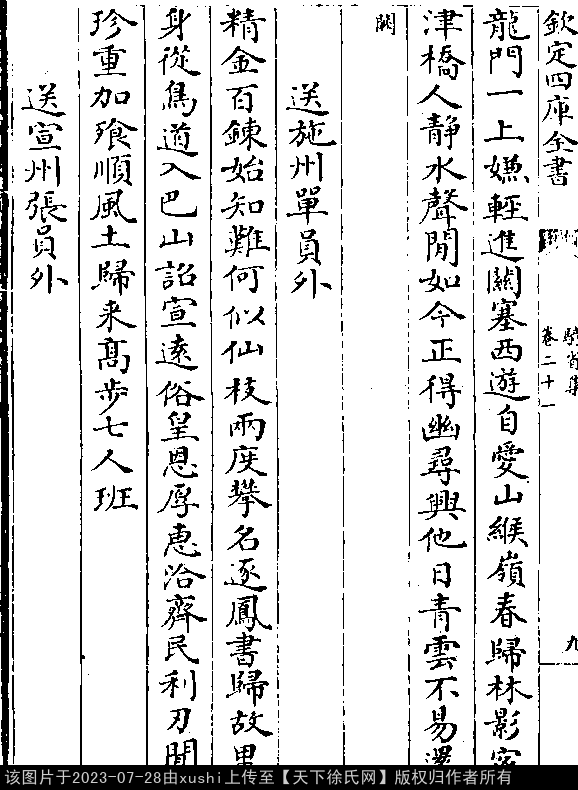 欽定四庫全書
卷二十一
九
龍門一上嫌輕進關塞西遊自愛山緱嶺春歸林影密
津橋人靜水聲閒如今正得幽尋興他日青雲不易還
闕
送施州單員外
精金百鍊始知難何似仙枝兩度攀名逐鳳書歸故里
身從鳥道入巴山詔宣遠俗皇恩厚惠洽齊民利刃閒
珍重加飱順風土歸来髙步七人班
送宣州張員外
该图片于2023-07-28由xushi上传至【天下徐氏网】版权归作者所有